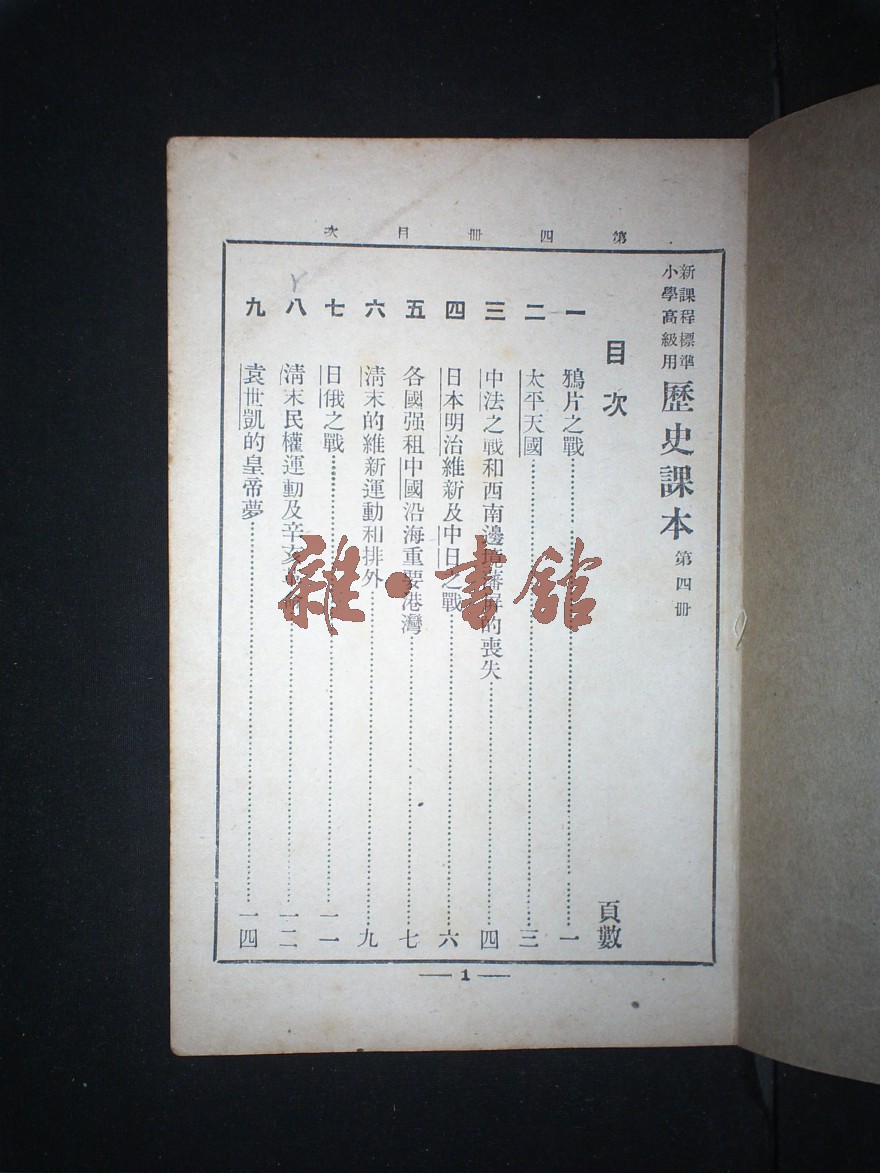 第四冊目次
新課程標準
小學高級用
歷史課本 第四冊
目次 頁數
一 鴉片之戰 一
二 太平天國 三
三 中法之戰和西南邊境藩屏的喪失 四
四 日本明治維新及中日之戰 六
五 各國强租中國沿海重要港灣 七
六 淸末的維新運動和排外 九
七 日俄之戰 一一
八 淸末民權運動及辛亥革命 一二
九 袁世凱的皇帝夢 一四
1
雜·書館